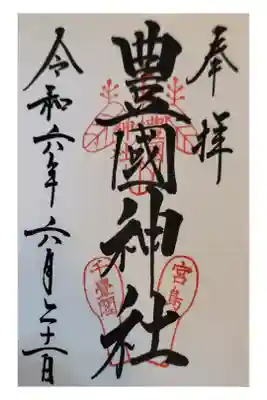 奉拝
豊國神社
宮島
千疊閣
令和六年六月二十一日